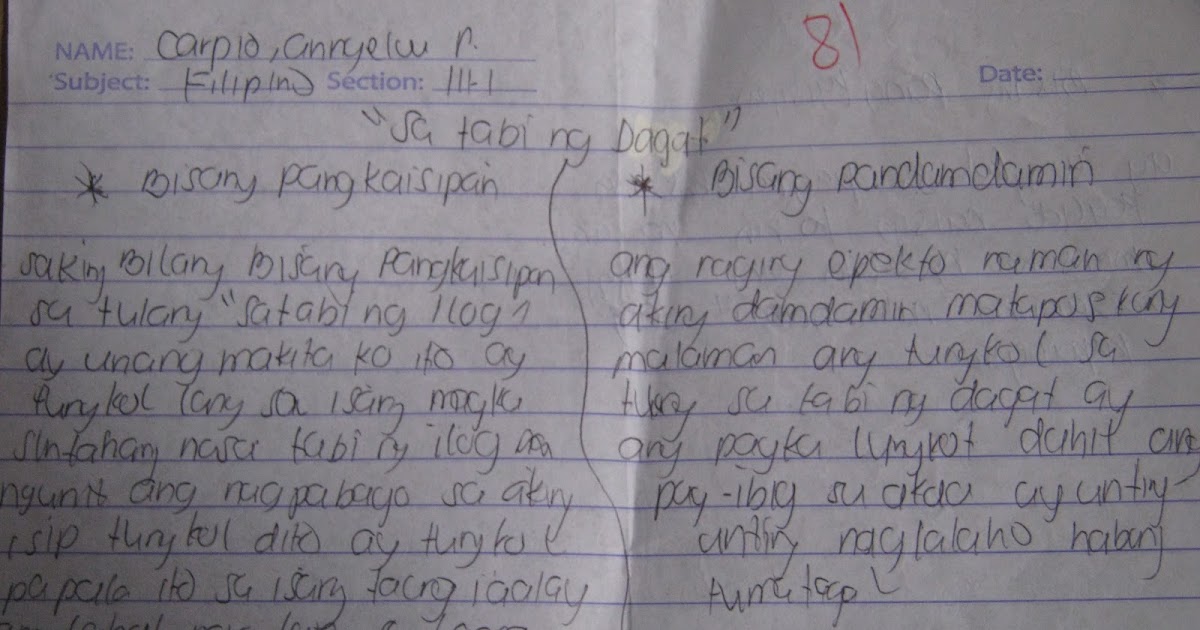 81
NAME: Carpio, anryelu P.
Subject: Filipino Section: III-1 Date:
"Sa tabi ng Dagat"
* Bisang pangkaisipan
sakin Bilang Bisang Pangkaisipan
sa tulang "satabi ng ilog"
ay unang makita ko ito ay
tungkol lang sa isang magka
sintahang nasa tabi ng ilog
ngunit ang nagpabago sa aking
isip tungkol dito ay tungkol
papala ito sa isang taong iaalay
* Bisang pandamdamin
ang naging epekto naman ng
aking damdamin matapos kong
malaman ang tungkol sa
tulang sa tabi ng dagat ay
ang pagka lungkot dahil ang
pag-ibig sa akda ay unting-
unting naglalaho habang